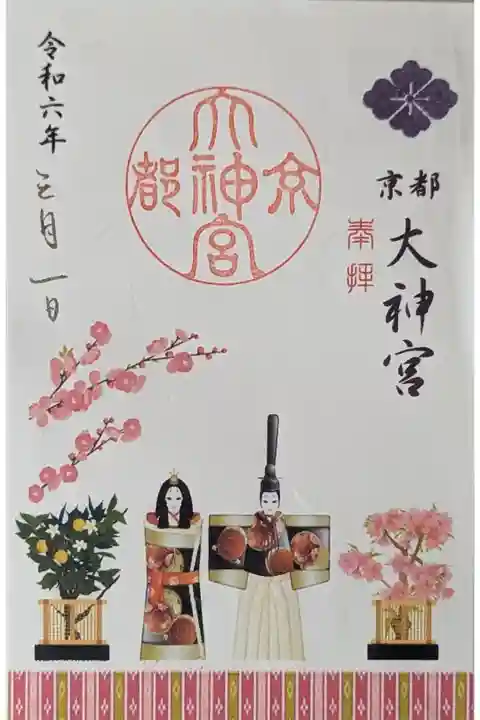 京都
大神宮
奉拝
大神宮
京都
令和六年 三月 一日